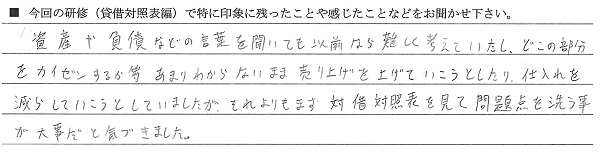 ■ 今回の研修（貸借対照表編）で特に印象に残ったことや感じたことなどをお聞かせ下さい。
資産や負債などの言葉を聞いても以前なら難しく考えていたし、どこの部分
をカイゼンするか等 あまりわからないまま 売り上げを上げていこうとしたり、仕入れを
減らしていこうとしていましたが、それよりもまず 対借対照表を見て 問題点を洗う事
が大事だと気づきました。